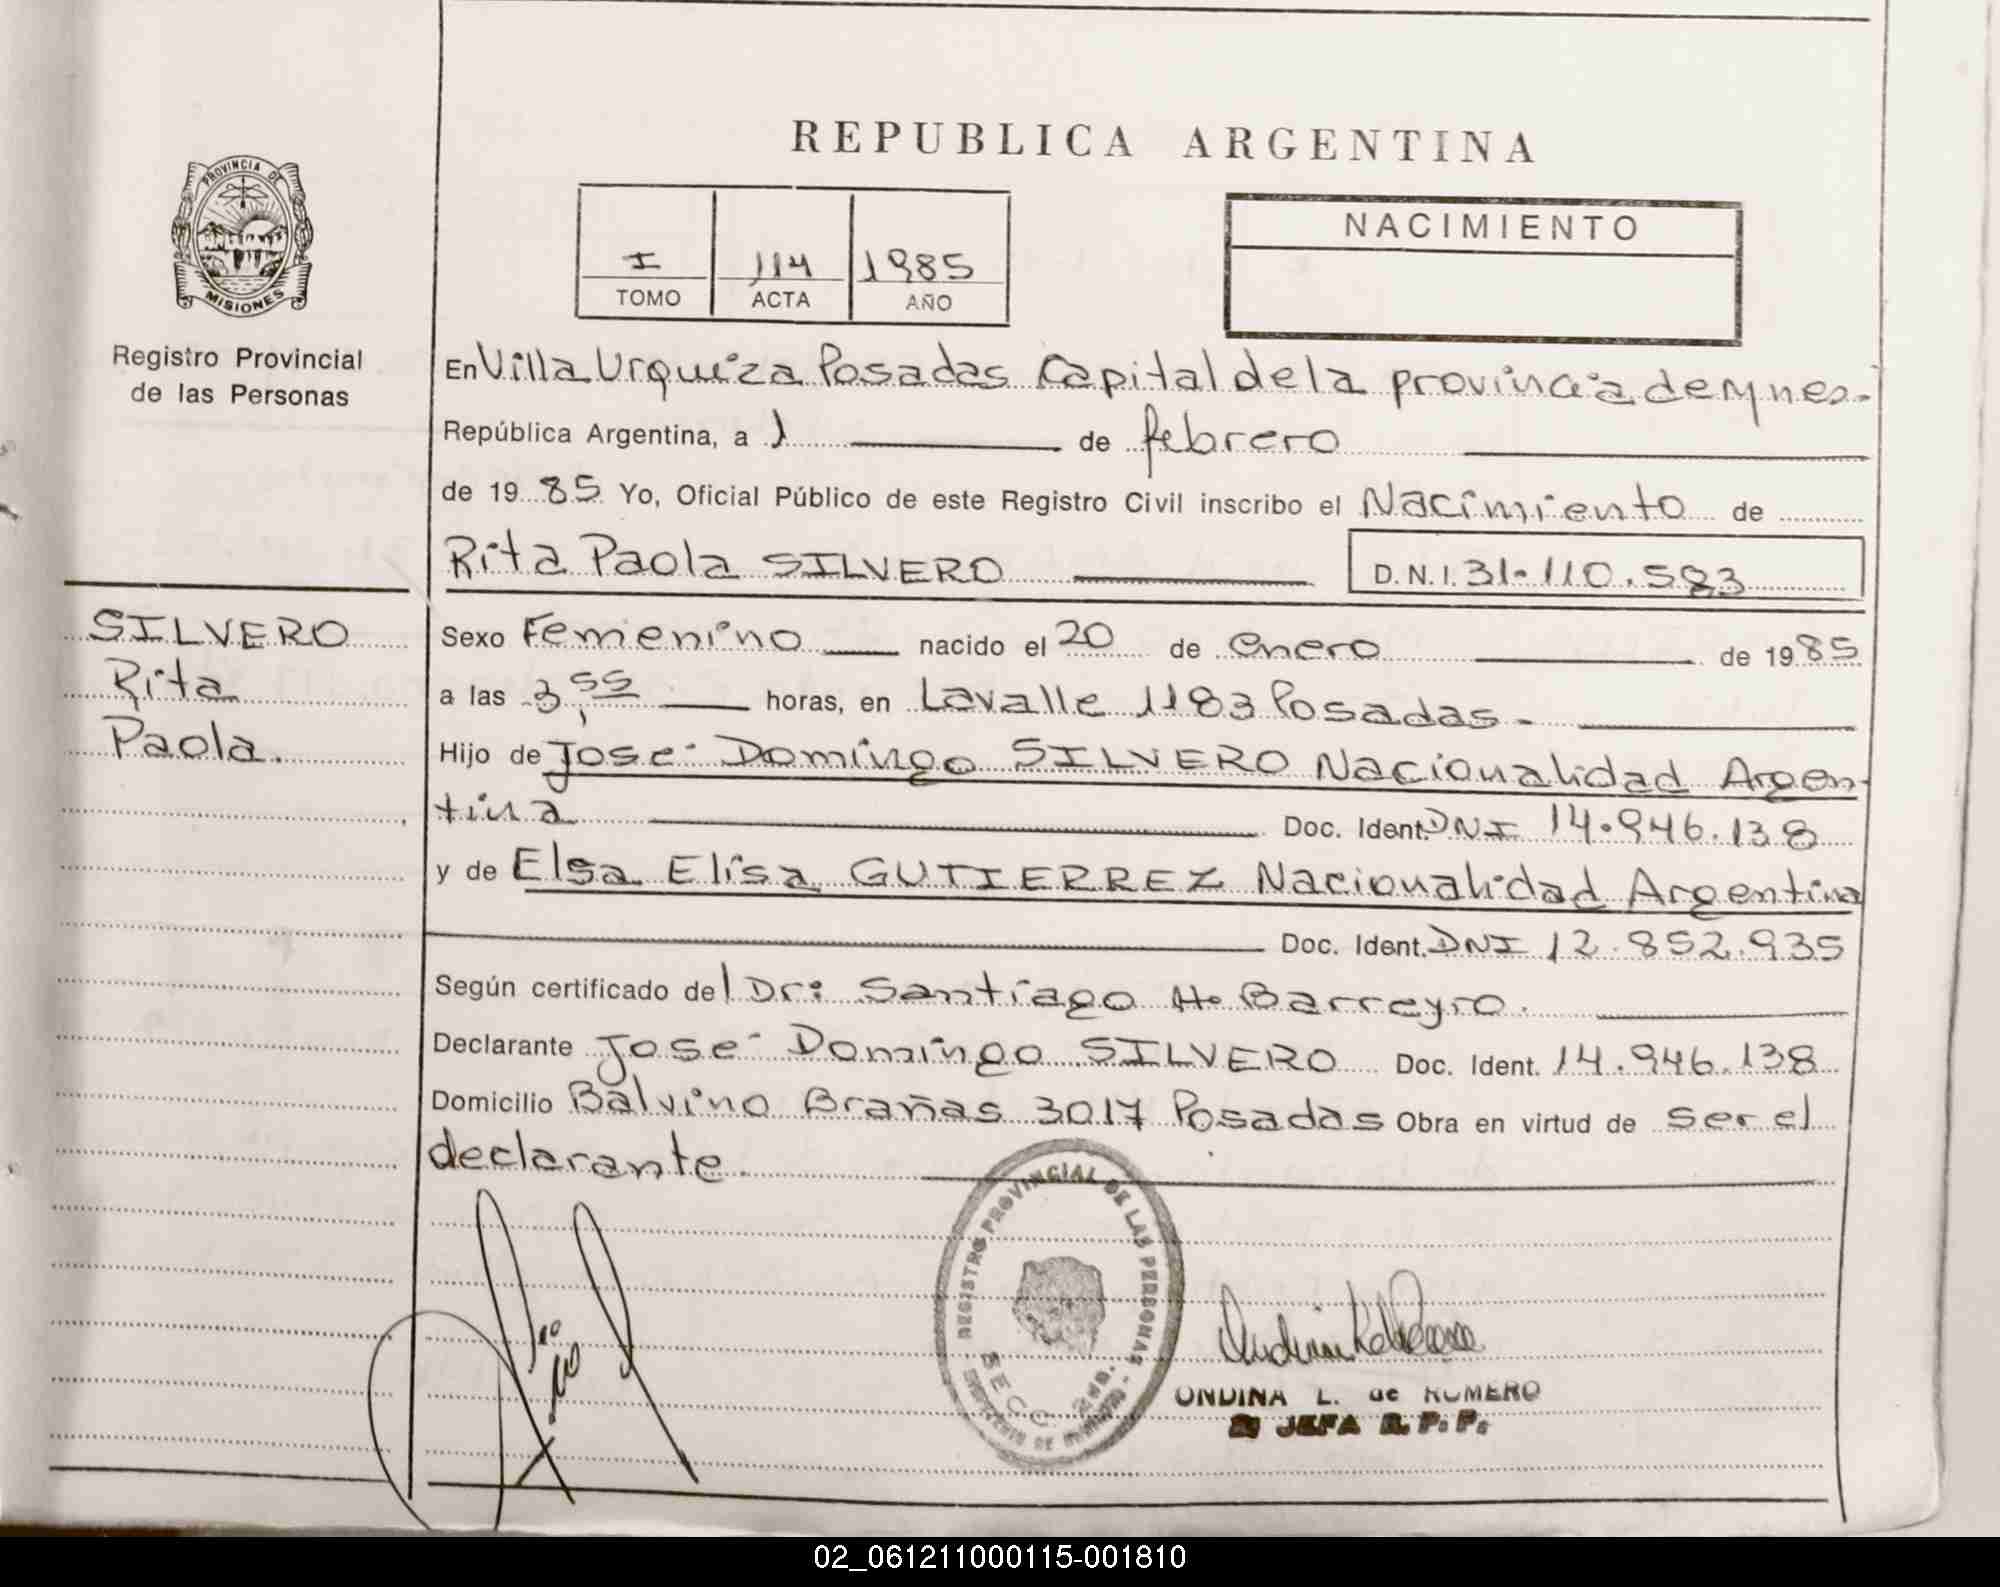 REPUBLICA ARGENTINA
PROVINCIA DE
MISIONES
Registro Provincial
de las Personas
I 114 1985
TOMO ACTA AÑO
NACIMIENTO
En Villa Urquiza Posadas Capital de la provincia de Mnes.
República Argentina, a 1 de febrero
de 1985 Yo, Oficial Público de este Registro Civil inscribo el Nacimiento de
Rita Paola SILVERO D.N.I. 31.110.583
SILVERO
Rita
Paola.
Sexo Femenino nacido el 20 de enero de 1985
a las 3,55 horas, en Lavalle 1183 Posadas.
Hijo de José Domingo SILVERO Nacionalidad Argen-
tina Doc. Ident. DNI 14.946.138
y de Elsa Elisa GUTIERREZ Nacionalidad Argentina
Doc. Ident. DNI 12.852.935
Según certificado del Dr: Santiago H. Barreyro.
Declarante José Domingo SILVERO Doc. Ident. 14.946.138
Domicilio Balvino Brañas 3017 Posadas Obra en virtud de ser el
declarante.
REGISTRO PROVINCIAL DE LAS PERSONAS
SECC. 2da.
ONDINA L. de ROMERO
JEFA R. P. P.
02_061211000115-001810